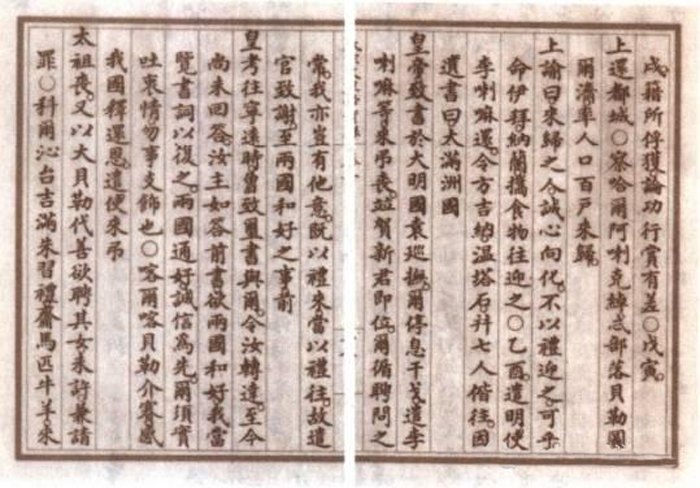 戌籍所俘獲論功行賞有差○戊寅
上還都城○察哈爾阿喇克綽忒部落貝勒圖
爾濟率人口百戶來歸
上諭曰來歸之人誠心向化不以禮迎之可乎
命伊拜納蘭攜食物往迎之○乙酉遣明使
李喇嘛還令方吉納溫塔石幷七人偕往因
遺書曰大滿洲國
皇帝致書於大明國袁巡撫爾停息干戈遣李
喇嘛等來弔喪並賀新君即位爾循聘問之
常我亦豈有他意既以禮來當以禮往故遣
官致謝至兩國和好之事前
皇考往寧遠時曾致璽書與爾令汝轉達至今
尚未回答汝主如答前書欲兩國和好我當
覽書詞以復之兩國通好誠信為先爾須實
吐衷情勿事支飾也○喀爾喀貝勒介賽感
我國釋還恩遣使來弔
太祖喪又以大貝勒代善欲聘其女來許兼請
罪○科爾沁台吉滿朱習禮齎馬匹牛羊來